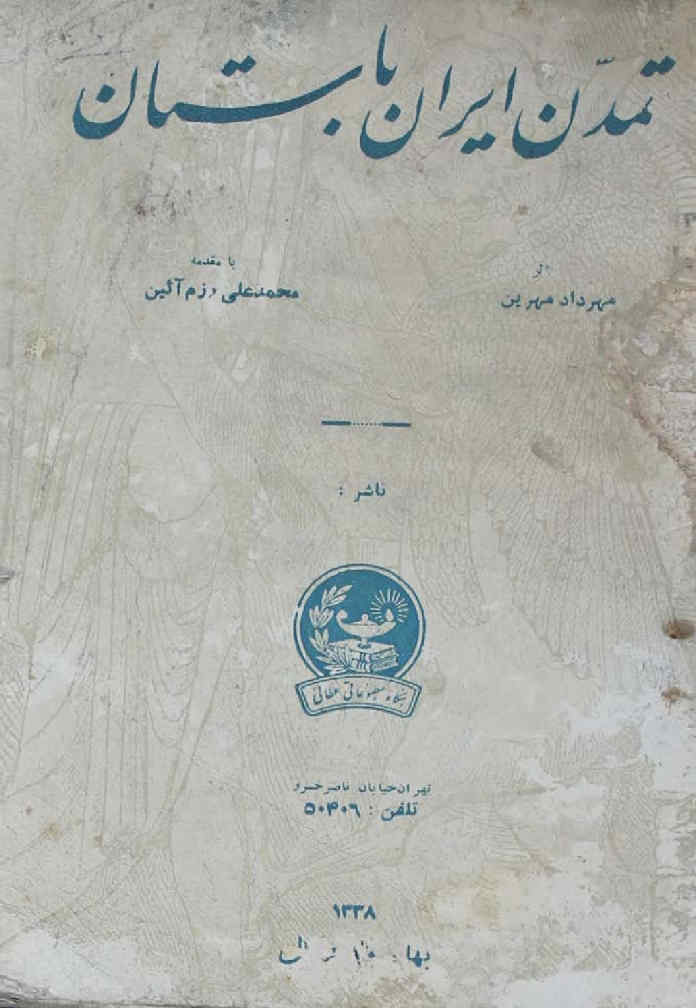 تمدّن ایران باستان
اثر
مهرداد مهرین
با مقدمه
محمدعلی رزم آئین
ناشر :
بنگاه مطبوعاتی عطائی
تهران خیابان ناصر خسرو
تلفن : ۵۰۴۰۶
۱۳۳۸
بها